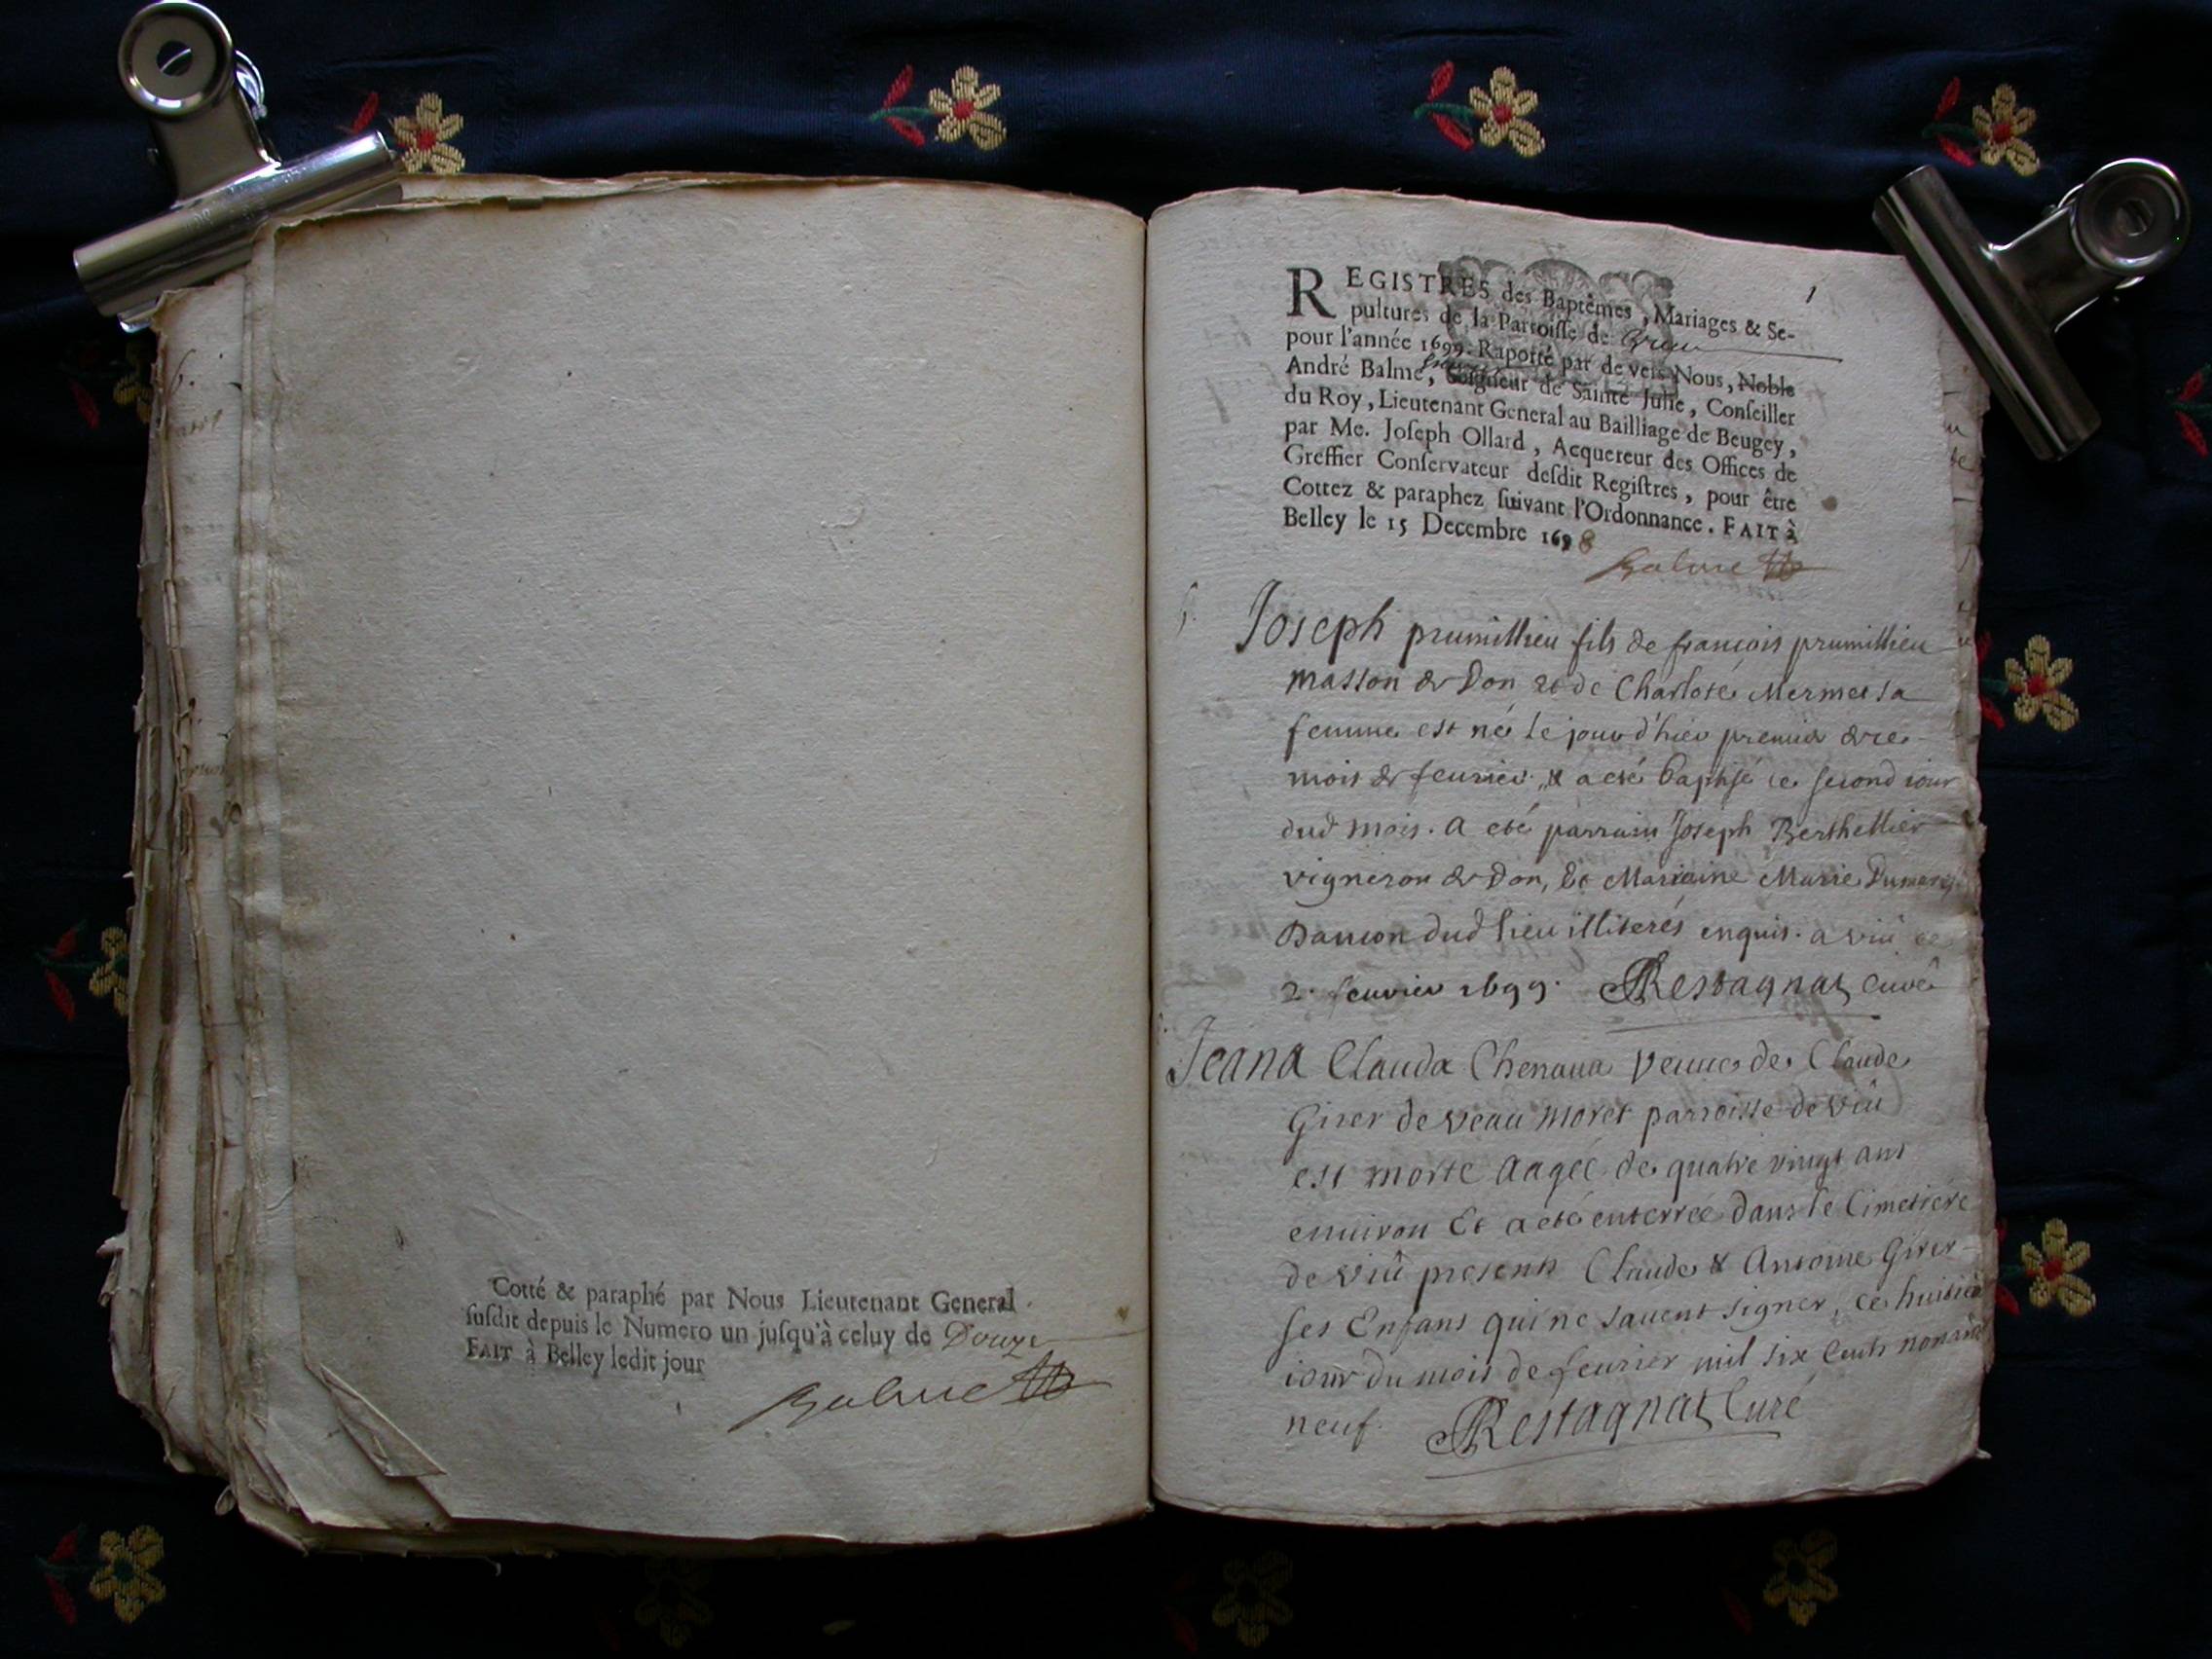 Cotté & paraphé par Nous Lieutenant General
ſuſdit depuis le Numero un juſqu'à celuy de Douze
FAIT à Belley ledit jour
Balme
1
REGISTRES des Baptêmes, Mariages & Se-
pultures de la Parroiſſe de
pour l'année 1699. Rapotté par devers Nous, Noble
André Balme, Seigneur de Sainte Julie, Conſeiller
du Roy, Lieutenant General au Bailliage de Beugey,
par Me. Joſeph Ollard, Acquereur des Offices de
Greffier Conſervateur deſdit Regiſtres, pour être
Cottez & paraphez ſuivant l'Ordonnance. FAIT à
Belley le 15 Decembre 1698
Balme
Joseph prumillieu fils de françois prumillieu
masson de Don et de Charlote Mermet sa
femme est né le jour d'hier premier de ce
mois de feurier & a eté baptisé ce second iour
dud mois. a eté parrain Joseph Berthellier
vigneron de Don, Et Marraine Marie
dud lieu illiterés enquis. a viû ce
2. feurier 1699. Restagnat curé
Jeana Clauda Chenaua veuue de Claude
Girer de veau moret parroisse de viû
est morte aagée de quatre vingt ans
enuiron Et a eté enterrée dans le Cimetiére
de viû presents Claude & Antoine Girer
ses Enfans qui ne sauent signer, ce huitiê
iour du mois de feurier mil six cents nonante
neuf. Restagnat Curé